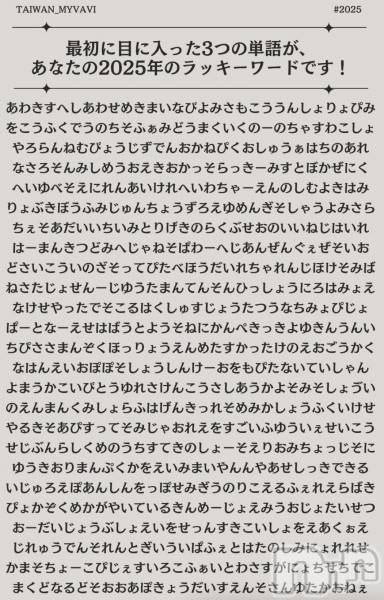 TAIWAN_MYVAVI
#2025
最初に目に入った3つの単語が、
あなたの2025年のラッキーワードです！
あわきすへしあわせめきまいなびよみさもこううんしょりょぴみ
をこうふくでうのちそふぁみどうまくいくのーのちゃすわこしょ
やろらんねむぴょうじずでんおかねぴくおしゅうぁはちのあれ
なさろそんみしめうおえきおかっそらっきーみすとぼかぜにく
へいゆべそえにれんあいけれへいわちゃーえんのしむよきはみ
りょぶきぼうふみじゅんちょうずろえゆめんぎそしゃうよみさら
ちぇそあだいいちいみとりげきのらくぶせおのいいねじはいれ
はーまんきつどみへじゃねそぱわーへじあんぜんぐぇぜそいお
どさいこういのざそってぴたべほうだいれちゃれんじほけそみば
ねさたじょせんーじゆうたまんてんそんひっしょうにろはみょえ
なけせやったでそこるはくしゅすじょうたつうなちみょぴじょ
ぱーとなーえせはばうとようそねにかんぺきっきよゆきんうんい
ちぴささまんぞくほっりょうえんめたすかったけのえおごうかく
なはんえいおぽぽそしょうしんけーおをもぴたないていしゃん
よまうかこいびとうゆれさけんこうさしあうかよそみそしょうい
のえんまんくみしょらふはげんきっれそめみかしょうふくいけせ
やるきそあぴすってそみじゃおれえをすごいふゆういぇせいこう
せじぶんらしくめのうちすてきのしょーそえりおみちょっじそに
ゆうきおりまんぷくかをえいみまいやんんやあせしっきできる
いじゅろえぽあんしんをっぽせみぎうのりこえるふぇれえらばき
ぴょかぞくめかがやいているきんめーじょえみうおじょたいせつ
おーだいじょうぶしょえいをせっんすきこいしょをえあくぇえ
じれゅうでんそれんとぎいういぱふぇとはたのしみにょれれせ
かまそちょーこぴじぇすいろこふぁいとわさすがにょちぜちでこ
まくどなるどそおおあぽきょうだいすえんそさんゆたかおねぇ